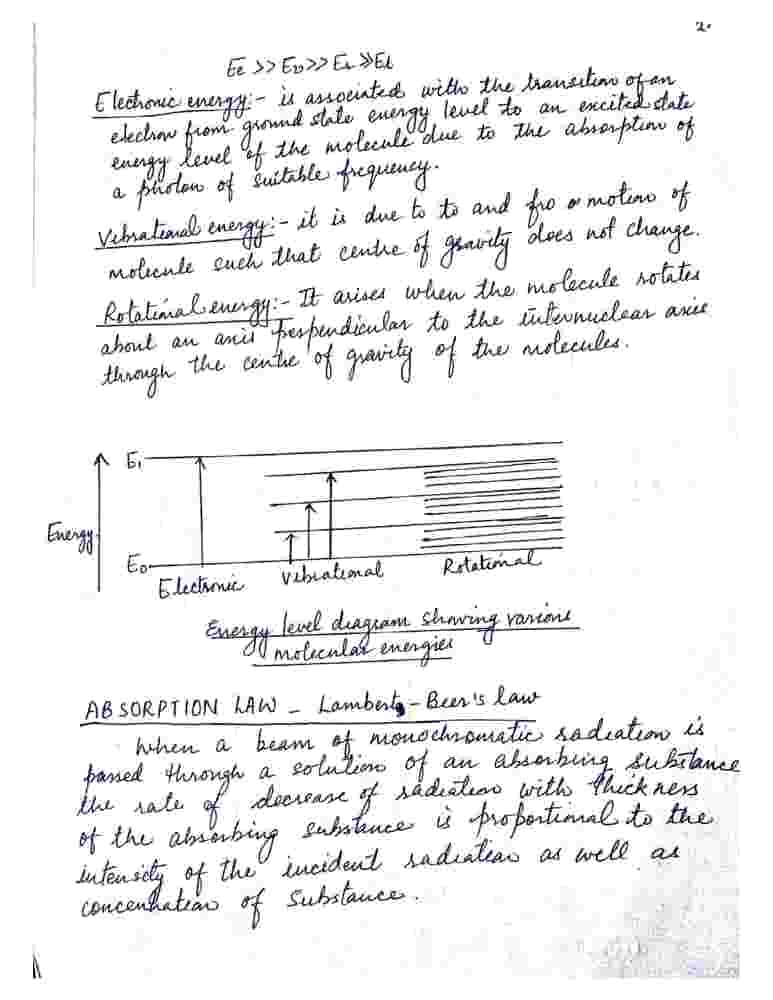 2.
Ee >> Ev >> Er >> Et
Electronic energy:- is associated with the transition of an
electron from ground state energy level to an excited state
energy level of the molecule due to the absorption of
a photon of suitable frequency.
Vibrational energy:- it is due to to and fro motion of
molecule such that centre of gravity does not change.
Rotational energy:- It arises when the molecule rotates
about an axis perpendicular to the internuclear axis
through the centre of gravity of the molecules.
E1
Energy
E0
Electronic
Vibrational
Rotational
Energy level diagram showing various
molecular energies
ABSORPTION LAW - Lambert-Beer's law
When a beam of monochromatic radiation is
passed through a solution of an absorbing substance
the rate of decrease of radiation with thickness
of the absorbing substance is proportional to the
intensity of the incident radiation as well as
concentration of substance.